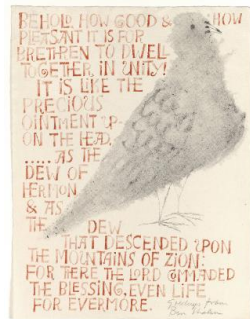 BEHOLD, HOW GOOD & HOW
PLEASANT IT IS FOR
BRETHREN TO DWELL
TOGETHER IN UNITY!
IT IS LIKE THE
PRECIOUS
OINTMENT UP-
ON THE HEAD,
..... AS THE
DEW OF
HERMON
& AS
THE DEW
THAT DESCENDED UPON
THE MOUNTAINS OF ZION:
FOR THERE THE LORD COMMANDED
THE BLESSING, EVEN LIFE
FOR EVERMORE.
Greetings from
Ben